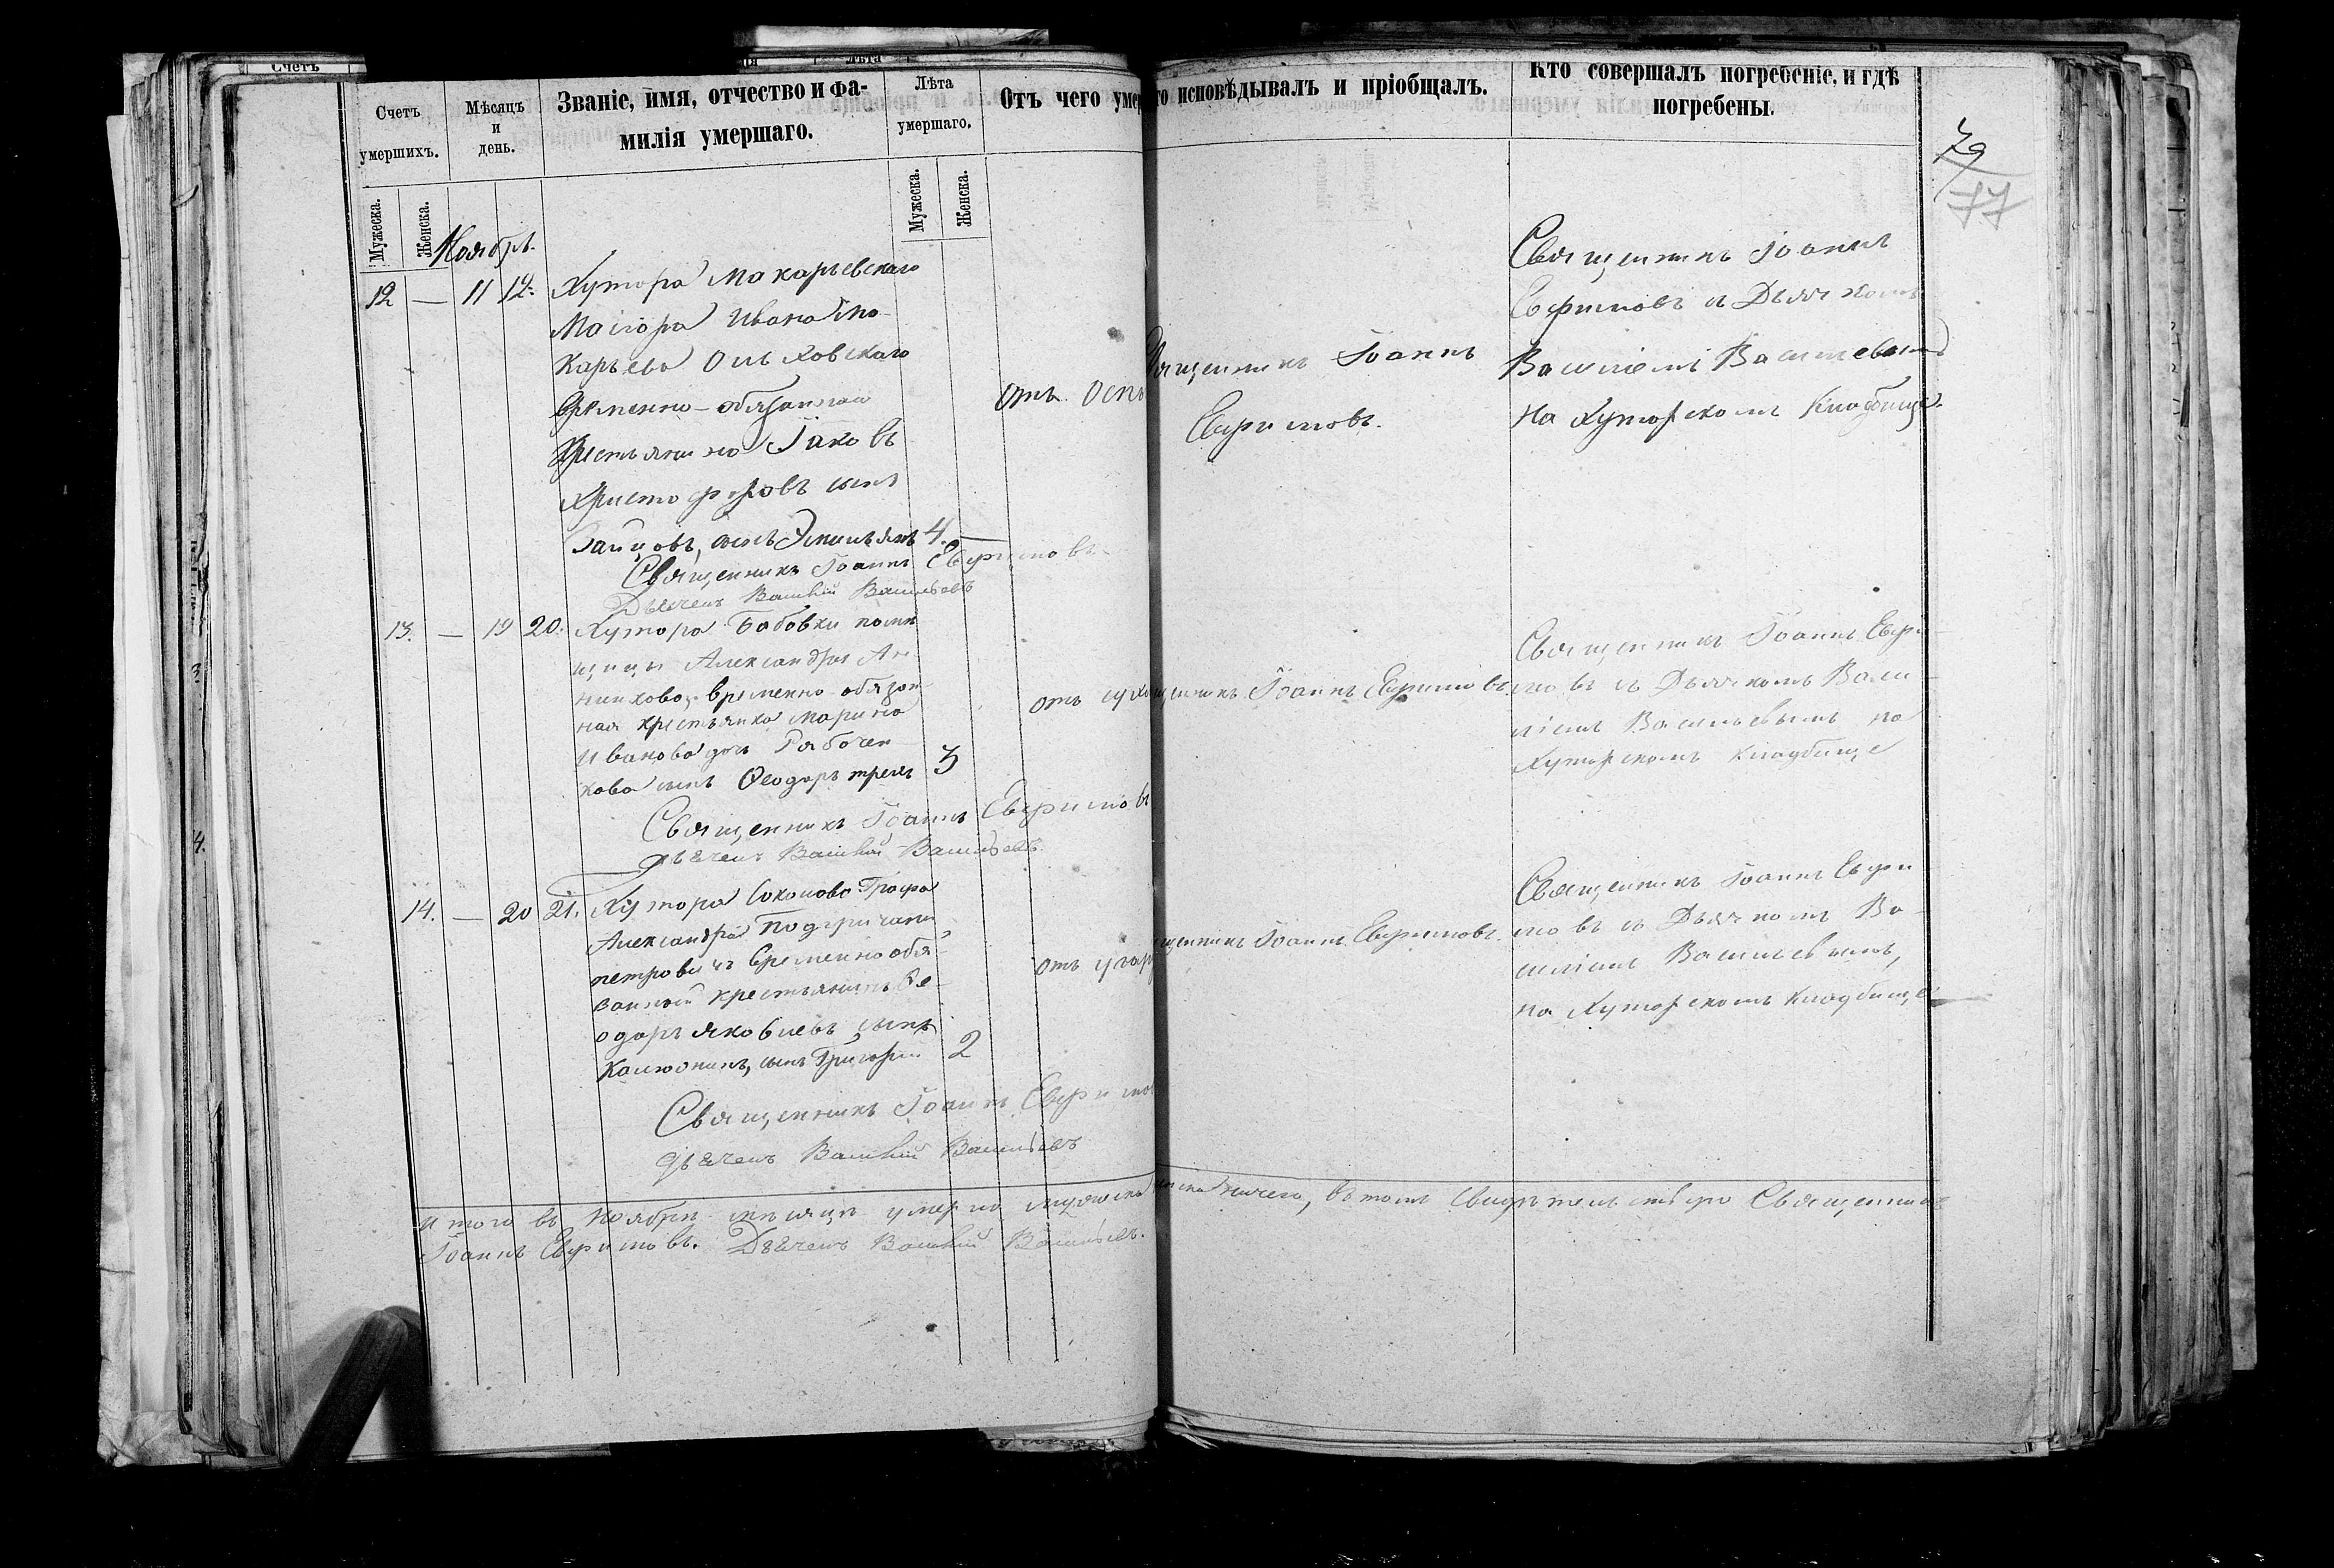 Счетъ умершихъ.
Мѣсяцъ и день.
Званіе, имя, отчество и фа-
милія умершаго.
Лѣта умершаго.
Отъ чего умер
го исповѣдывалъ и пріобщалъ.
Кто совершалъ погребеніе, и гдѣ
погребены.
Мужеска. Женска.
Мужеска. Женска.
79
77
Ноябрь.
12 — 11 12. Хутора Макарьевскаго
Маіора Ивана Ма-
карьева Ольховскаго
временно-обязаннаго
Крестьянина Іаковъ
Христофоровъ сынъ
Зайцовъ, сынъ Эмильянъ 4.
отъ Осп
Священникъ Іоаннъ
Евфимовъ.
Священникъ Іоаннъ
Евфимовъ съ Дьячкомъ
Василіемъ Васильевымъ
на Хуторскомъ Кладбищѣ.
Священникъ Іоаннъ Евфимовъ
Дьячекъ Василий Васильевъ
13. — 19 20. Хутора Бабовки помѣ
щицы Александры Ан
никовой временно-обязан
ная крестьянка Марина
Иванова дочь Рябочен
кова сынъ Ѳеодоръ трехъ 3
отъ сух
щенникъ Іоаннъ Евфимовъ
Священникъ Іоаннъ Евфи-
мовъ съ Дьячкомъ Васи-
ліемъ Васильевымъ на
Хуторскомъ Кладбище
Священникъ Іоаннъ Евфимовъ
дьячекъ Василий Васильевъ.
14. — 20 21. Хутора Соколово Графа
Александра Подгричани
Петровичъ временнообя-
занный крестьянинъ Ѳе-
одоръ Яковлевъ сынъ
Калюжинъ, сынъ Григорий 2
отъ угар
щенникъ Іоаннъ Евфимовъ.
Священникъ Іоаннъ Евфи
мовъ съ Дьячкомъ Ва-
силіемъ Васильевымъ,
на Хуторскомъ Кладбищѣ
Священникъ Іоаннъ Евфимо
дьячекъ Василий Васильевъ
Итого въ Ноябрѣ мѣсяцѣ умерло мужеска
ничего, въ томъ Свидѣтельствую Священникъ
Іоаннъ Евфимовъ. Дьячекъ Василий Васильевъ.